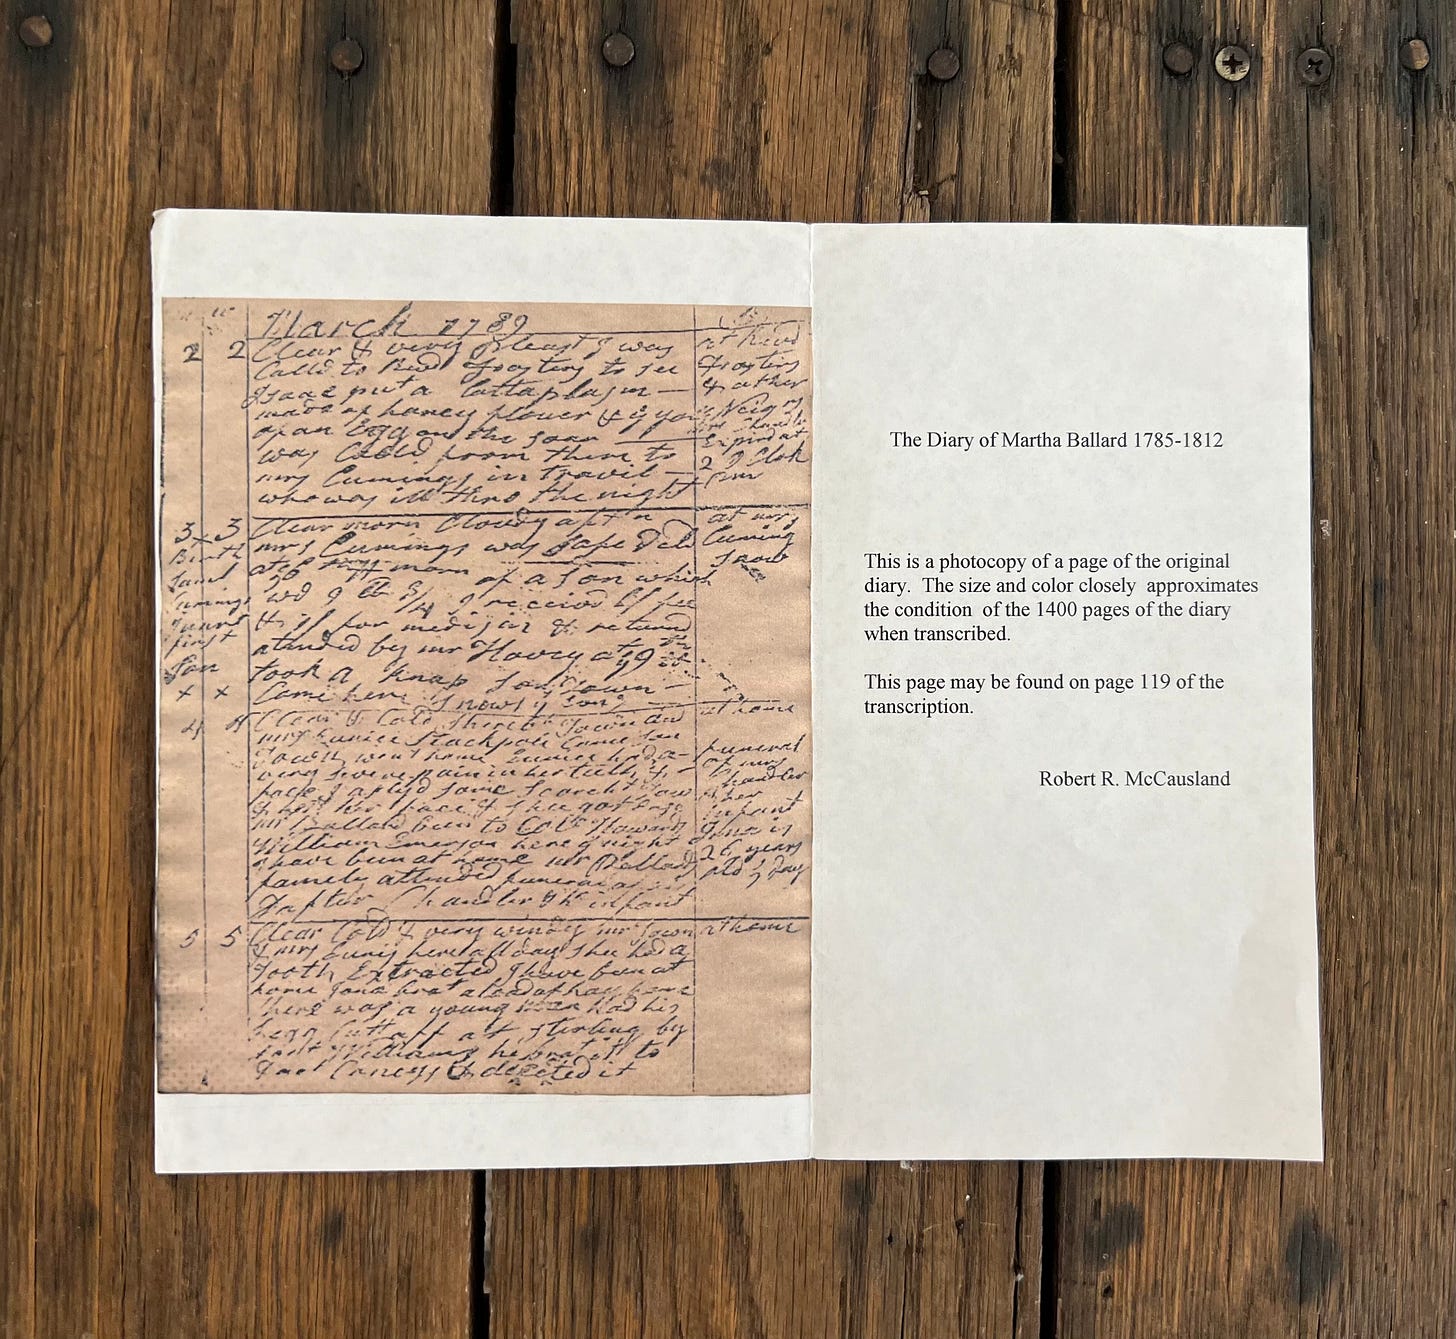 March 1789
2 2 Clear & very pleast I was
Calld to Revd Fosters to see
Isaac put a Cattaplasm —
made of honey flower & y yolk
of an Egg on the soar
was Calld from there to
mrs Cumings in Travil —
who was ill thro the night
at Revd
Fosters
& other
Neigrs
mrs Chandler
Expird at
2 O Clok
pm
3 3 Clear morn Cloudy aft n
mrs Cumings was safe Dld
at 6 morn of a son which
wd 9 lb 3/4 I receivd 6/ fee
& 1/ for medisin & returnd
atended by mr Hovey at 9
took a knap
Came here Snowd
at mrs
Cumings
snow
Birth
Saml
Cumings
first
Son
x x
4 4 Clear & Cold
mrs Eunice Stackpole Came
went home Eunice had a
very severe pain in her teeth &
face I aplyd some
& her face & shee got Ease
mr Ballard been to Colln Howards
William Emerson here night
I have been at home mr Ballard
family attended funeral
Chandler & infant
at home
funeral
of mrs
Chandler
& her
Infant
26 years
old 1 Day
5 5 Clear Cold & very windy mr Town
& mrs here all day shee had a
Tooth Extracted I have been at
home Jona brot a load of hay home
there was a young man had his
Legg Cutt off at Sterling by
Doct Williams he brot it to
Doct Conys & disected it
at home
The Diary of Martha Ballard 1785-1812
This is a photocopy of a page of the original
diary. The size and color closely approximates
the condition of the 1400 pages of the diary
when transcribed.
This page may be found on page 119 of the
transcription.
Robert R. McCausland